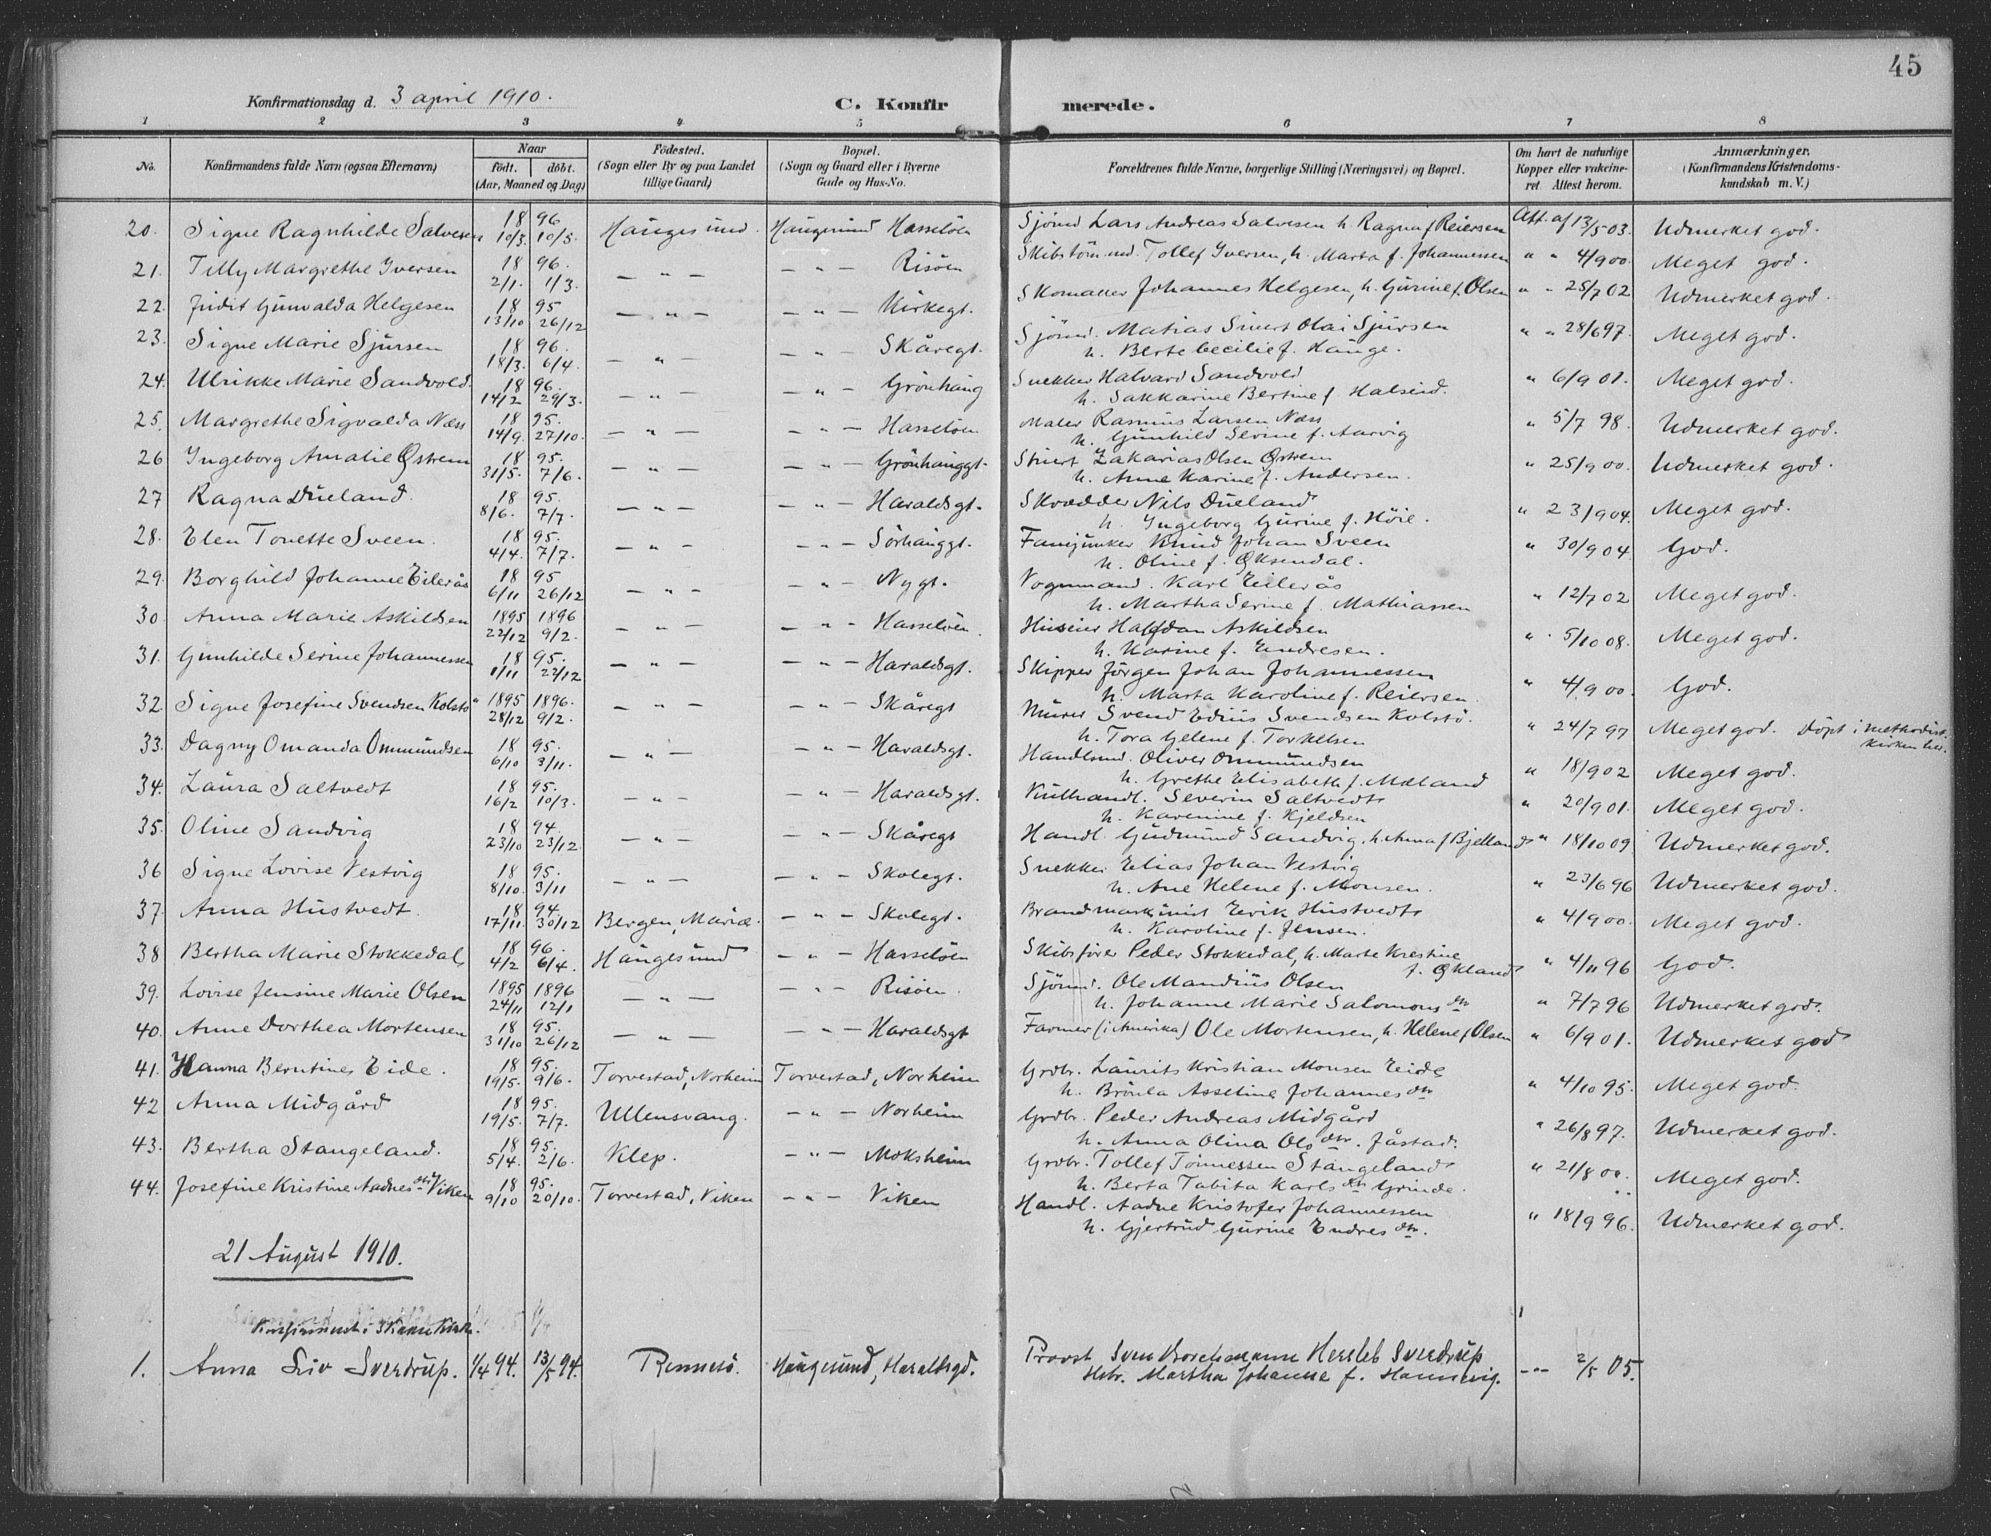 45
Konfirmationsdag d. 3 april 1910.
C. Konfirmerede.
1 2 3 4 5 6 7 8
No. Konfirmandens fulde Navn (ogsaa Efternavn) Naar født. døbt. (Aar, Maaned og Dag) Fødested. (Sogn eller By og paa Landet tillige Gaard) Bopæl. (Sogn og Gaard eller i Byerne Gade og Hus-No. Forældrenes fulde Navne, borgerlige Stilling (Næringsvei) og Bopæl. Om havt de naturlige Kopper eller vakcineret. Attest herom. Anmærkninger. (Konfirmandens Kristendomskundskab m. V.)
20. Signe Ragnhilde Salvesen 18 96 10/3. 10/5. Haugesund. Haugesund Hasseløen Sjømd Lars Andreas Salvesen h. Ragna f Reiersen Att. af 13/5 03. Udmerket god.
21. Tilly Margrethe Iversen 18 96. 2/1. 1/3. — " — — " — Risøen Skibstømmd. Tollef Iversen, h. Marta f. Johannessen " " 4/9 00. Meget god.
22. Judit Gunvalda Helgesen 18 95 13/10 26/12 — " — — " — Kirkegt. Skomaker Johannes Helgesen, h. Gurine f. Olsen " " 25/7 02 Udmerket god.
23. Signe Marie Sjursen 18 96. 18/3. 6/4. — " — — " — Skåregt. Sjømd. Matias Sivert Olai Sjursen h. Berte Cecilie f. Hauge. " " 28/6 97. Meget god.
24. Ulrikke Marie Sandvold. 18 96. 14/2 29/3. — " — — " — Grønhaug Snekker Halvard Sandvold h. Sakkarine Bertine f. Halseid. " 6/9 01. Meget god.
25. Margrethe Sigvalda Næss 18 95. 14/9. 27/10. — " — — " — Hasseløen Maler Rasmus Larsen Næss h. Gunhild Serine f. Aarvig " 5/7 98. Udmerket god.
26 Ingeborg Amalie Østrem 18 95. 31/5. 7/6. — " — — " — Grønhauggt. Stuert Zakarias Olsen Østrem h. Anne Karine f. Andersen. " 25/9 00. Udmerket god.
27 Ragna Dueland. 18 95. 8/6. 7/7. — " — — " — Haraldsgt. Skrædder Nils Dueland h. Ingeborg Gurine f. Høie. " 23/9 04. Meget god.
28. Elen Tonette Sveen. 18 95. 4/4. 7/7. — " — — " — Sørhauggt. Fanejunker Knud Johan Sveen h. Oline f. Øksendal. " 30/9 04 God.
29. Borghild Johanne Eilerås 18 95 6/11 26/12 — " — — " — Nygt. Vognmand. Karl Eilerås h. Martha Serine f. Mathiassen " 12/7 02 Meget god.
30. Anna Marie Askildsen 1895 1896 22/12 9/2. — " — — " — Hasseløen. Huseier Halfdan Askildsen h. Karine f. Endresen. " 5/10 08. Meget god.
31. Gunhilde Serine Johannessen 18 95. 1/11 27/12 — " — — " — Haraldsgt. Skipper Jørgen Johan Johannessen h. Marta Karoline f. Reiersen. " 4/9 00. God.
32. Signe Josefine Svendsen Kolstø 1895 1896. 28/12 9/2. — " — — " — Skåregt Murer Svend Edius Svendsen Kolstø. h. Tora Helene f. Torkelsen " 24/7 97 Meget god. Døpt i methodistkirken her.
33. Dagny Omanda Ommundsen 18 95. 6/10 3/11. — " — — " — Haraldsgt. Handlsmd. Oliver Ommundsen h. Grethe Elisabeth f. Mæland " 18/9 02 Meget god.
34. Laura Saltvedt 18 95. 16/2 10/3. — " — — " — Haraldsgt. Kulhandl. Severin Saltvedt h. Karenine f. Kjeldsen " 20/9 01. Meget god.
35. Oline Sandvig 18 94. 23/10 23/12 — " — — " — Skåregt Handl. Gudmund Sandvig, h. Anna f Bjelland " 18/10 09 Udmerket god.
36 Signe Lovise Vestvig 18 95. 8/10. 3/11 — " — — " — Skolegt. Snekker Elias Johan Vestvig h. Ane Helene f. Monsen. " 23/6 96 Udmerket god.
37. Anna Hustvedt. 18 94. 17/11. 30/12 Bergen, Mariæ. — " — Skolegt. Brandmaskinist Eirik Hustvedt h. Karoline f. Jensen. " 4/9 00. Meget god.
38 Bertha Marie Stokkedal, 18 96. 4/2 6/4. Haugesund — " — Hasseløen Skibsfører Peder Stokkedal, h. Marte Krestine f. Økland " 4/11 96 God.
39. Lovise Jensine Marie Olsen 1895 1896 24/11 12/1 — " — — " — Risøen. Sjømd. Ole Mandius Olsen h. Johanne Marie Salomonsdtr " 7/7 96 Udmerket god.
40. Anne Dorthea Mortensen 18 95. 31/10 26/12 — " — — " — Haraldsgt Farmer (i Amerika) Ole Mortensen, h. Helene f Olsen " 6/9 01. Udmerket god
41. Hanna Berntines Eide. 18 95. 19/5. 9/6. Torvestad, Norheim Torvestad, Norheim Grdbr. Laurits Kristian Monsen Eide h. Brønla Asseline Johannesdtr " 4/10 95. Meget god.
42 Anna Midgård 18 95. 19/5. 7/7. Ullensvang. — " — Norheim Grdbr. Peder Andreas Midgård h. Anna Olina Olsdtr. Jåstad. " 26/8 97. Udmerket god.
43. Bertha Stangeland. 18 95. 5/4. 2/6. Klep. — " — Moksheim Grdbr. Tollef Tønnessen Stangeland h. Berta Tabita Karlsdtr Grinde. " 21/8 00. Meget god.
44. Josefine Kristine Aadnesdtr Viken 18 95. 9/10 20/10. Torvestad, Viken — " — Viken Handl. Aadne Kristofer Johannessen h. Gjertrud Gurine Endresdtr. " 18/9 96. Udmerket god.
21 August 1910.
1. Anna Liv Sverdrup. 1/4 94. 13/5 94. Rennesø. Haugesund, Haraldsgd. Provst Sven Borchmann Hersleb Sverdrup Hst. Martha Johanne f. Hannevig. — " — 2/5 05.